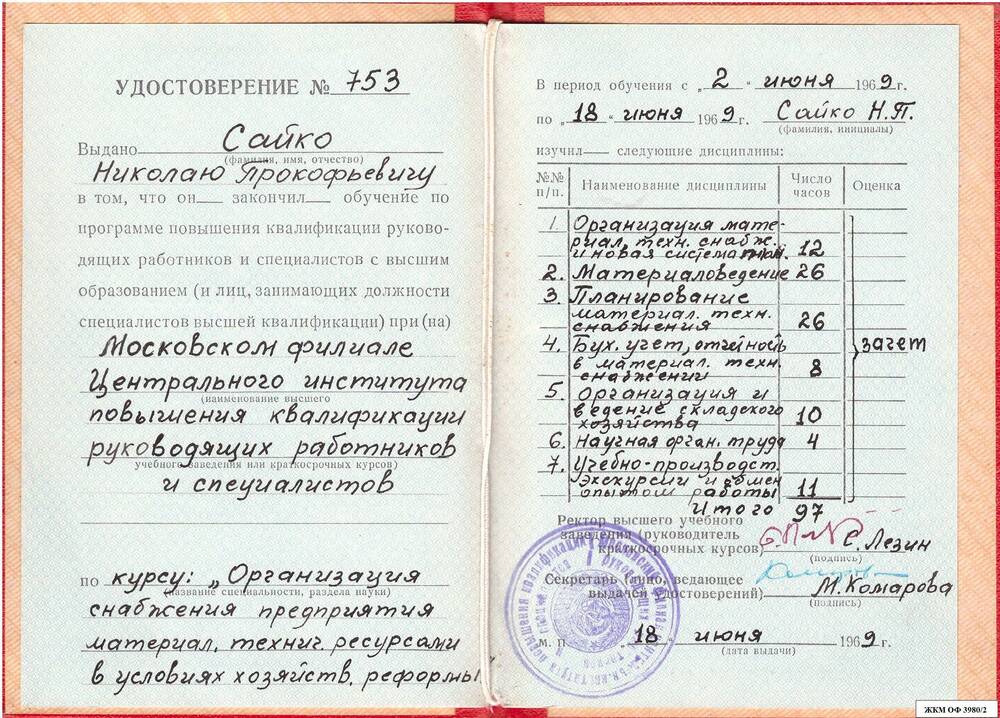 УДОСТОВЕРЕНИЕ № 753
Выдано Сайко
(фамилия, имя, отчество)
Николаю Прокофьевичу
в том, что он закончил обучение по
программе повышения квалификации руково-
дящих работников и специалистов с высшим
образованием (и лиц, занимающих должности
специалистов высшей квалификации) при (на)
Московском филиале
Центрального института
(наименование высшего
повышения квалификации
руководящих работников
учебного заведения или краткосрочных курсов)
и специалистов
по курсу: „Организация
(название специальности, раздела науки)
снабжения предприятия
материал. технич. ресурсами
в условиях хозяйств. реформы
В период обучения с „2" июня 1969 г.
по „18" июня 1969 г. Сайко Н.П.
(фамилия, инициалы)
изучил следующие дисциплины:
№№ п/п. Наименование дисциплины Число часов Оценка
1. Организация мате-
риал. техн. снабж.
и новая система 12
2. Материаловедение 26
3. Планирование
материал. техн.
снабжения 26
4. Бух. учет, отчетность
в материал. техн.
снабжении 8
зачет
5. Организация и
ведение складского
хозяйства 10
6. Научная орган. труда 4
7. Учебно-производст.
экскурсии и обмен
опытом работы 11
Итого 97
Ректор высшего учебного
заведения (руководитель
краткосрочных курсов) С. Лезин
(подпись)
Секретарь (лицо, ведающее
выдачей удостоверений) М. Комарова
(подпись)
М. П. 18 июня 1969 г.
(дата выдачи)
ЖКМ ОФ 3980/2